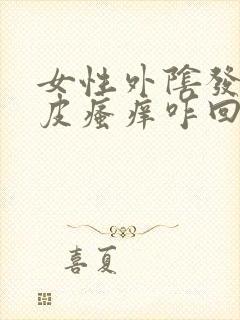 女性外陰發
皮瘙痒咋回
喜夏